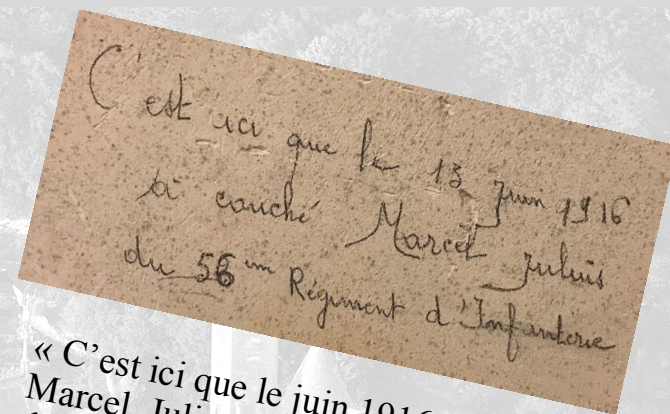 C'est ici que le 13 Juin 1916
a couché Marcel Juluis
du 56em Régiment d'Infanterie
« C'est ici que le juin 1916
Marcel